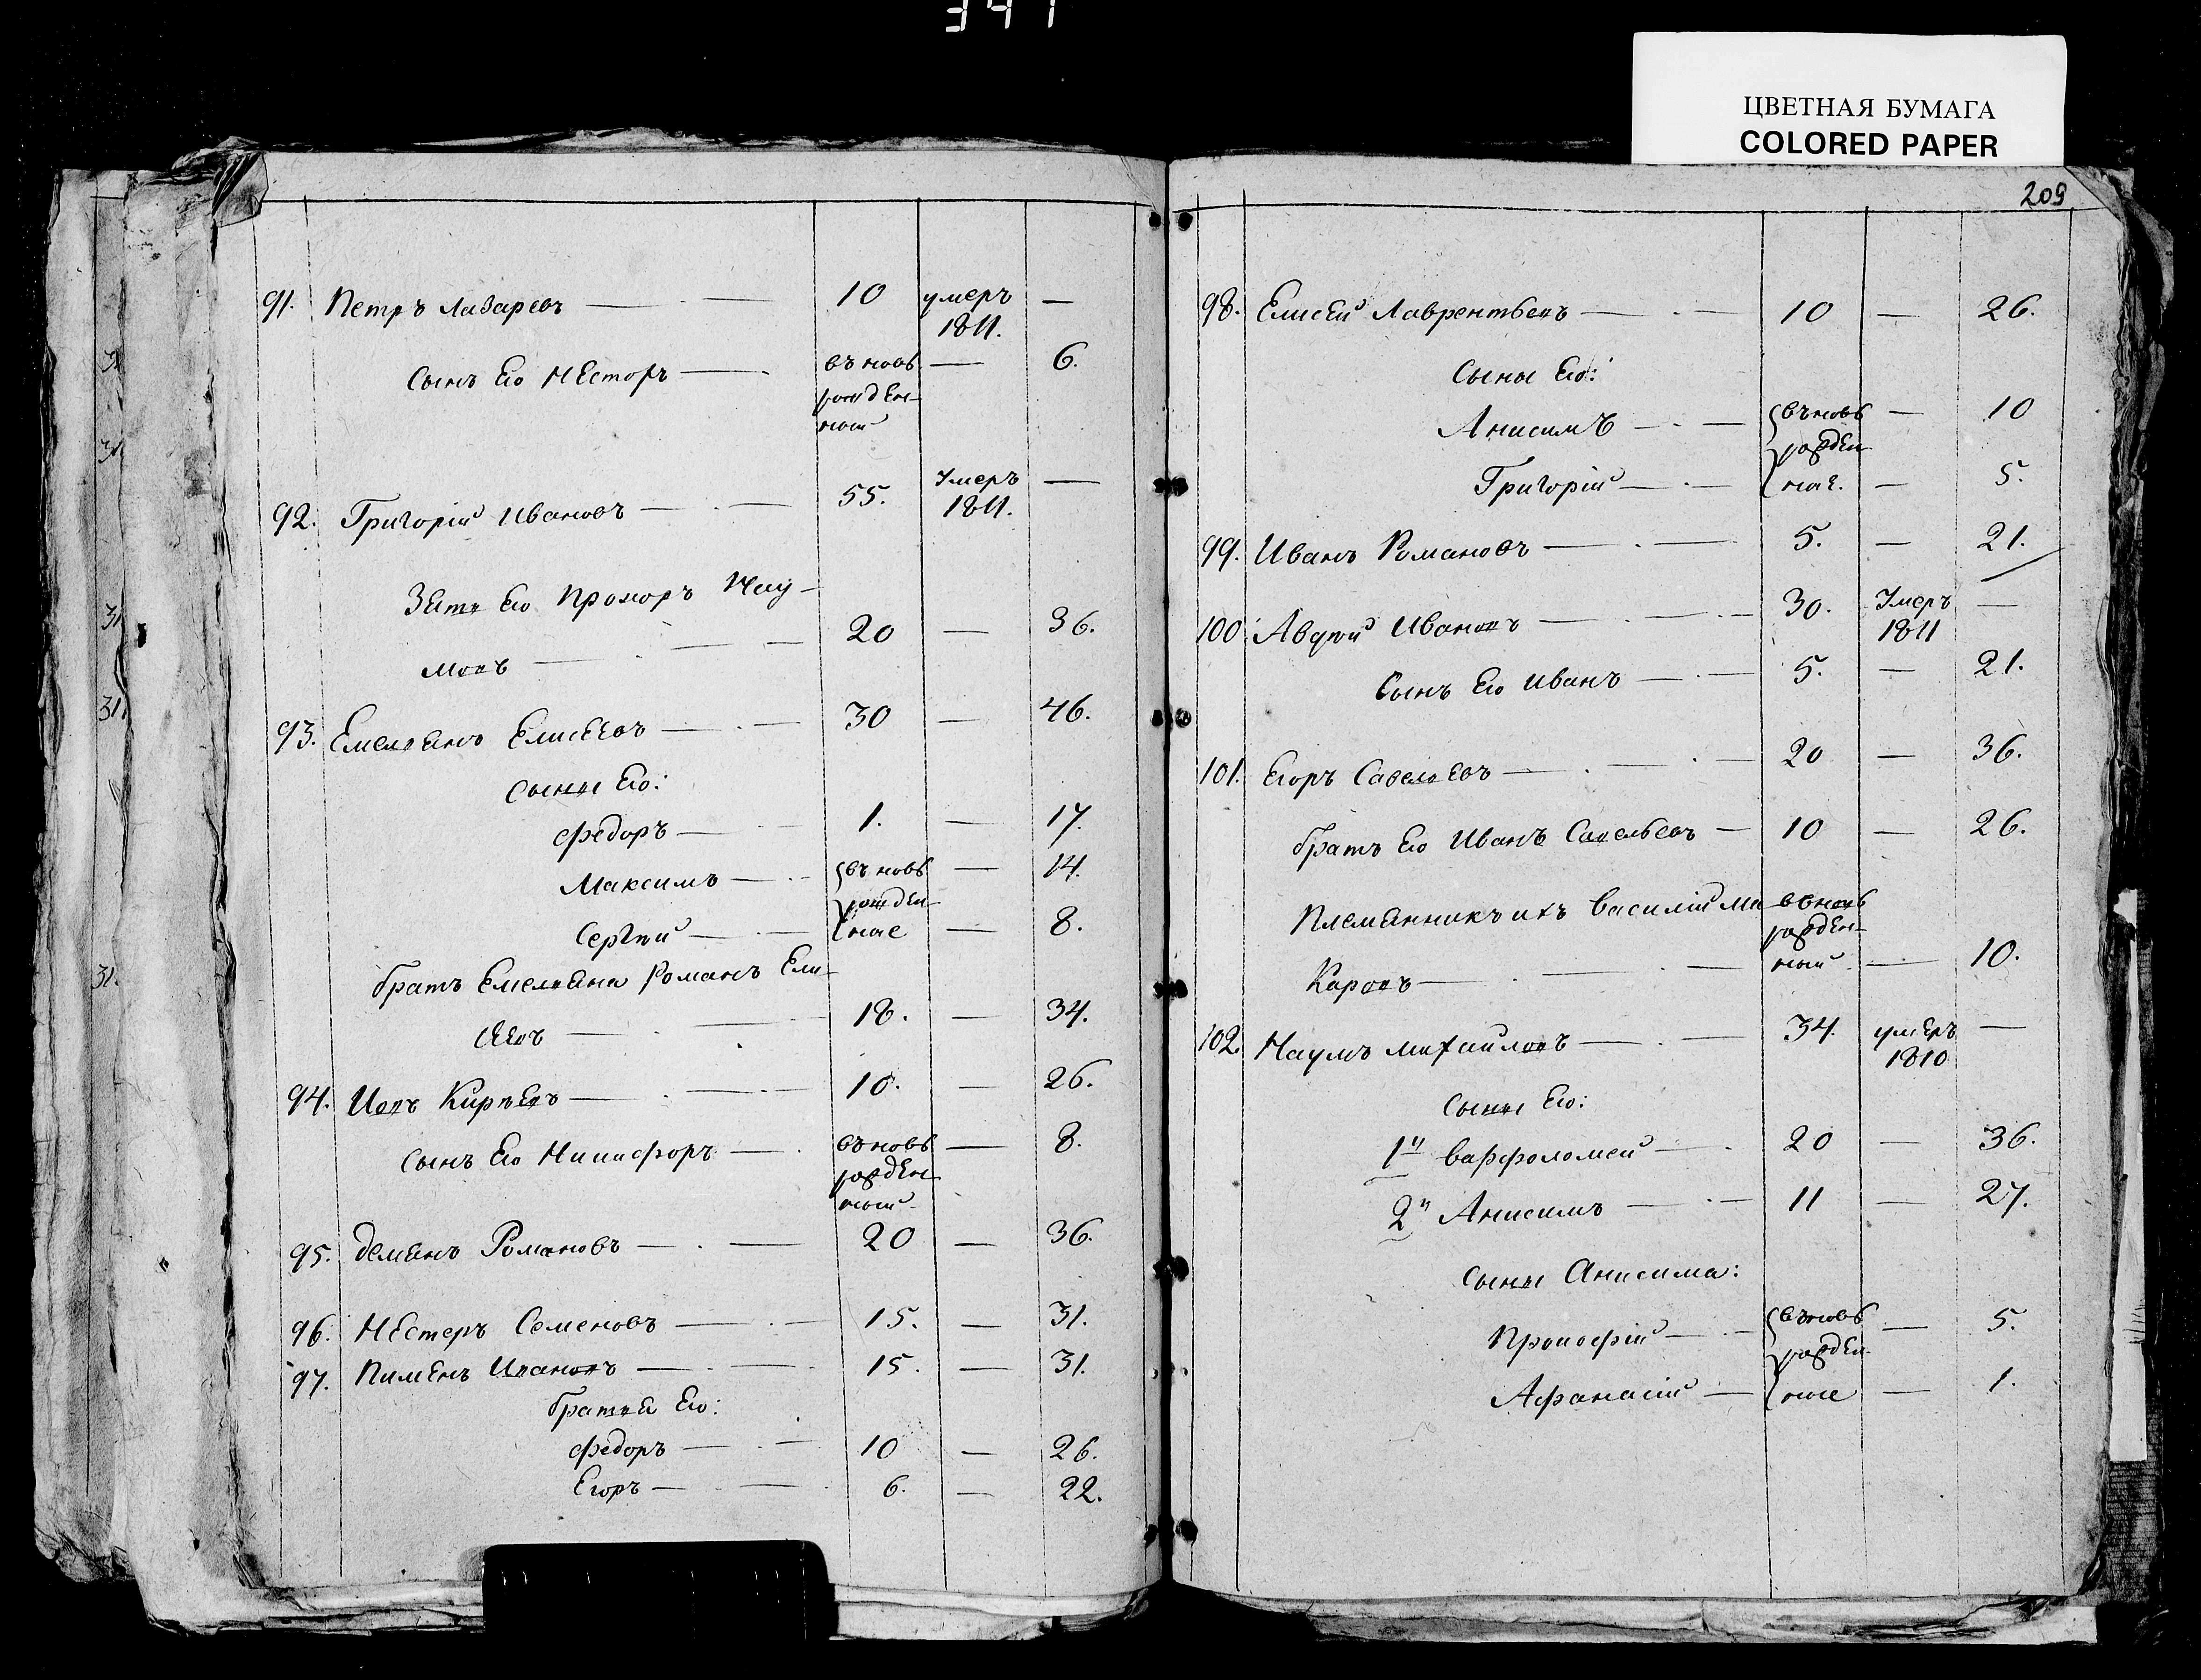 341
ЦВЕТНАЯ БУМАГА
COLORED PAPER
91. Петръ Лазаревъ — 10 умеръ —
1811.
Сынъ Его НЕсторъ — въновь — 6.
рожден-
ный
92. Григорій Ивановъ — 55. Умеръ —
1811.
Зять Его Прохоръ Нау-
мовъ — 20 — 36.
93. Емельянъ Елисеевъ — 30 — 46.
Сыны Его:
Федоръ — 1. — 17.
Максимъ — въновь — 14.
рожден-
Сергей — ные — 8.
Братъ Емельяна Романъ Ели-
сеевъ — 18. — 34.
94. Иовъ Кирѣевъ — 10. — 26.
Сынъ Его Никифоръ — въновь — 8.
рожден-
ный
95. Демьянъ Романовъ — 20 — 36.
96. НЕстеръ Семеновъ — 15. — 31.
97. Пименъ Ивановъ — 15. — 31.
Братья Его:
Федоръ — 10 — 26.
Егоръ — 6. — 22.
209
98. Елисей Лаврентьевъ — 10 — 26.
Сыны Его:
Анисимъ — въновь — 10
рожден-
Григорій — ные. — 5.
99. Иванъ Романовъ — 5. — 21.
100 Авдѣй Ивановъ — 30. Умеръ —
1811
Сынъ Его Иванъ — 5. — 21.
101. Егоръ Савельевъ — 20 — 36.
Братъ Его Иванъ Савельевъ — 10 — 26.
Племянникъ ихъ Василій Ма- въновь
рожден-
каровъ — ный — 10.
102. Наумъ Михайловъ — 34. умеръ —
1810
Сыны Его:
1й Варфоломей — 20 — 36.
2й Анисимъ — 11 — 27.
Сыны Анисима:
Прокофій — въновь — 5.
рожден-
Афанасій — ные — 1.
31
31
31
31.
31.